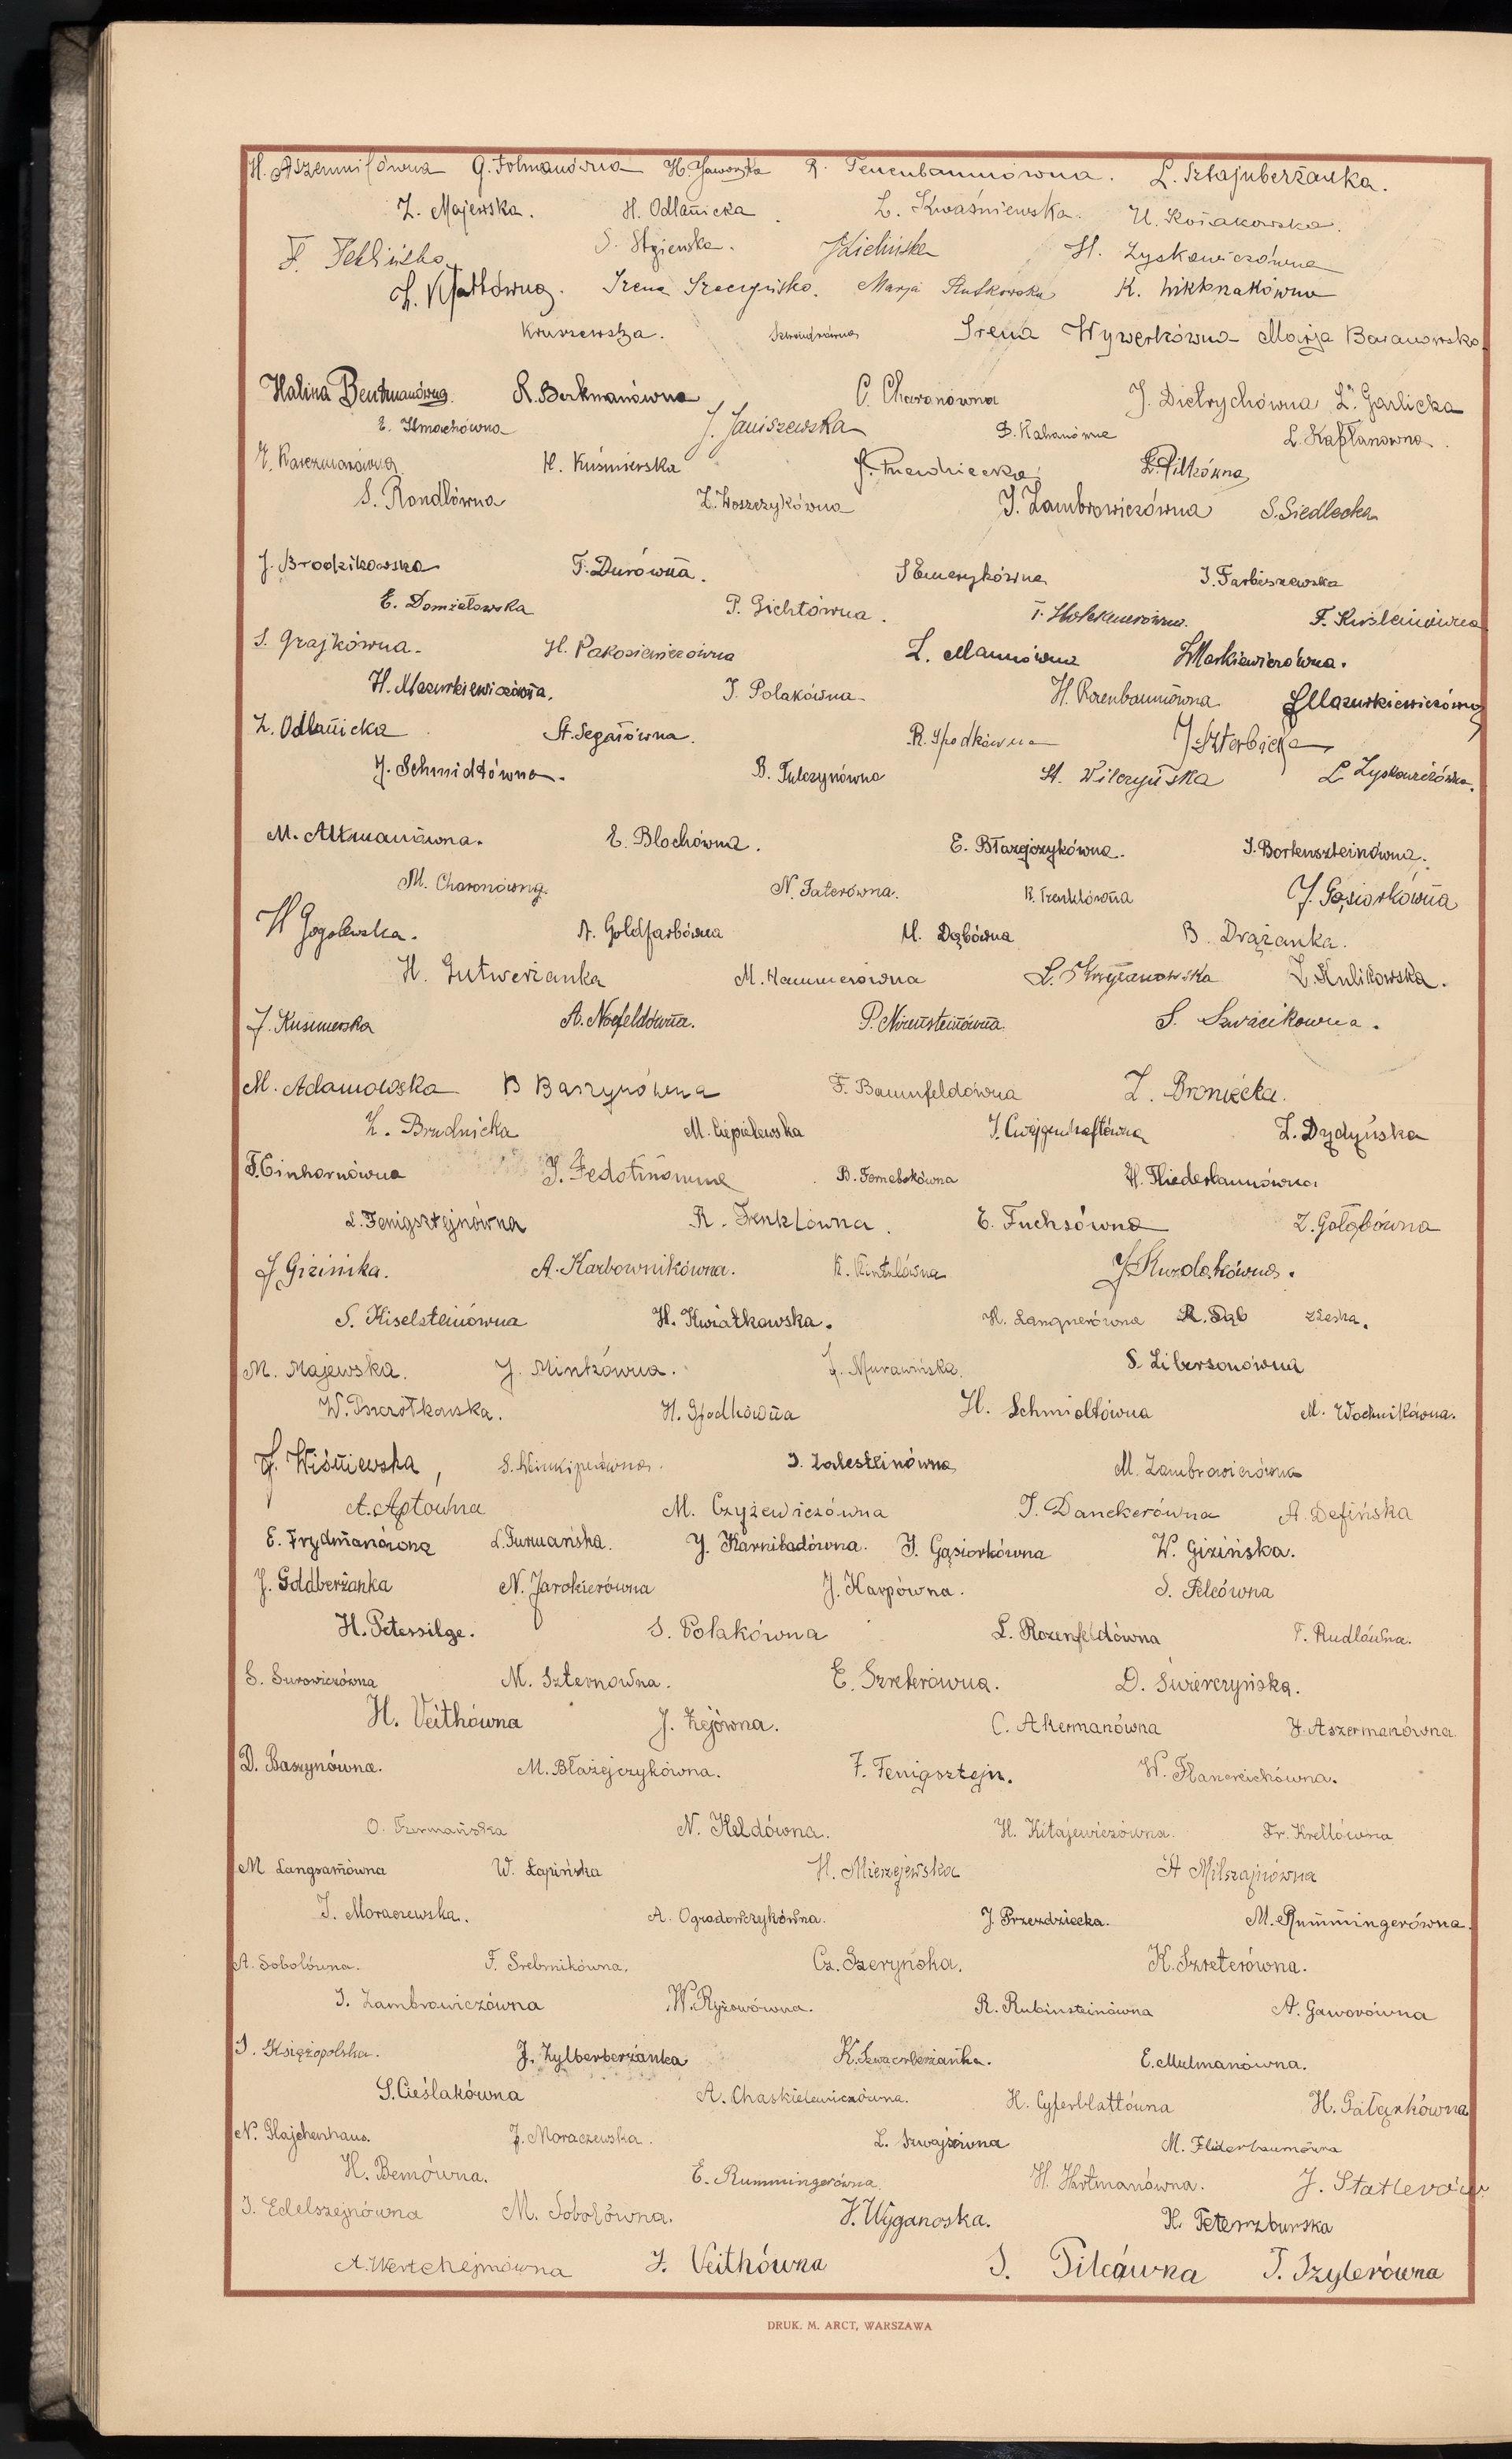 H. Folmanówna H. Jaworska R. Tenenbaumówna. L. Sztajnberżanka.
Z. Majewska. H. Odlanicka L. Kwaśniewska. U. Kosakowska.
S. Stgienska. J Zielińska H. Zyskowiczówna
Irena Szczęyńska. Marja Rutkowska K. Wiktozakówna
Kruszewska. Irena Wywerkówna Marja Baranowska
Halina Bentmanówna. R. Berkmanówna C. Charonówna J. Dietrychówna L. Garlicka
J. Janiszewska D. Kahanówna L. Kapłanowna.
E. Karczmarówna H. Kuśmierska E. Pitkówna
S. Rondlówna Z. Woszczykówna J. Zambrowiczówna S. Siedlecka
J. Brodzikowska F. Durówna. S Emerykówna J. Farbiszewska
E. Domżałowska P. Gichtówna.
S. Grajkówna. H. Pakosiewiczówna L. Mannówna Z Markiewiczówna.
H. Mazurkiewiczówna. J. Polakówna H. Rozenbaumówna S Mazurkiewiczówna
Z. Odlanicka St. Segałówna. R. Spodkówna J. Szterbicka
J. Schmidtówna. B. Tulczynówna St. Wilczyńska L Zyskowiczówna.
M. Altmanówna. E. Blochówna. E. Błażejczykówna. J. Bortenszteinówna.
M. Charonówna. N. Faterówna. R. Frenklówna J. Gąsiorkówna
H Gogolewska. A. Goldfarbówna M. Dąbówna B. Drążanka.
H. Gutwerżanka M. Hammerówna L. Krzyżanowska Z. Kulikowska.
J. Kusmierska A. Norfeldówna. P. Nirensteinówna. S. Szwacikowna.
M. Adamowska B Baszynówna F. Baumfeldówna Z. Bronięcka.
Z. Brudnicka M. Ciepielewska J. Cwajgenhaftówna Z. Dydyńska
F. Einhornówna J. Fedotinówna H. Fliederbaumówna.
L. Fenigsztejnówna R. Frenklówna. E. Fuchsówna Z. Gołąbówna
J Gizinska. A. Karbownikówna. J Kurdakówna.
S. Kiselsteinówna H. Kwiatkowska. H. Langnerówna R. Dąb
M. Majewska. J. Mintzówna. J. Murawińska. S. Libersonówna
W. Pszczółkowska. H. Spodkówna H. Schmidtówna M. Woźnikówna.
J. Wiśniewska, J. Zalesteinówna M. Zambrowiczówna
A. Aptówna M. Czyżewiczówna J. Danckerówna A. Defińska
E. Frydmanówna L. Furmańska. J. Karnibadówna. J. Gąsiorkówna W. Gizińska.
J. Goldberżanka N. Jarokierówna J. Karpówna. S. Pelcówna
H. Petersilge. S. Polakówna L. Rozenfeldówna F. Rudlówna.
S. Surowiczówna M. Szternówna. E. Szreterówna. D. Świerczyńska.
H. Veithówna J. Zejówna. C. Akermanówna J. Aszermanówna.
D. Baszynówna. M. Błażejczykówna. F. Fenigsztejn. W. Flancreichówna.
O. Furmańska N. Heldówna. H. Kitajewiczówna. Fr. Krellówna
M Langsamówna W. Łapińska H. Mierzejewska A Milsztajnówna
J. Moraczewska. A. Ogrodowczykówna. J. Przezdziecka. M. Rummingerówna.
A. Sobolówna. F. Srebrnikówna. Cz. Szeryńska. K. Szreterówna.
J. Zambrowiczówna W. Ryżowówna. R. Rubinsteinówna A. Gaworówna
J. Księżopolska. J. Zylberberżanka K. Szwarcberżanka. E. Mulmanówna.
S. Cieślakówna A. Chaskielewiczówna. H. Cyferblattówna H. Gałązkówna
N. Glajchenhaus. J. Moraczewska. L. Szwajzówna M. Fliderbaumówna
H. Bemówna. E. Rummingerówna. H. Hartmanówna. J. Statlerów
J. Edelsztejnówna M. Sobolówna. J. Wyganoska. H. Peterzburska
A. Wertchejmówna J. Veithówna S. Pilcówna J. Szylerówna
DRUK. M. ARCT, WARSZAWA